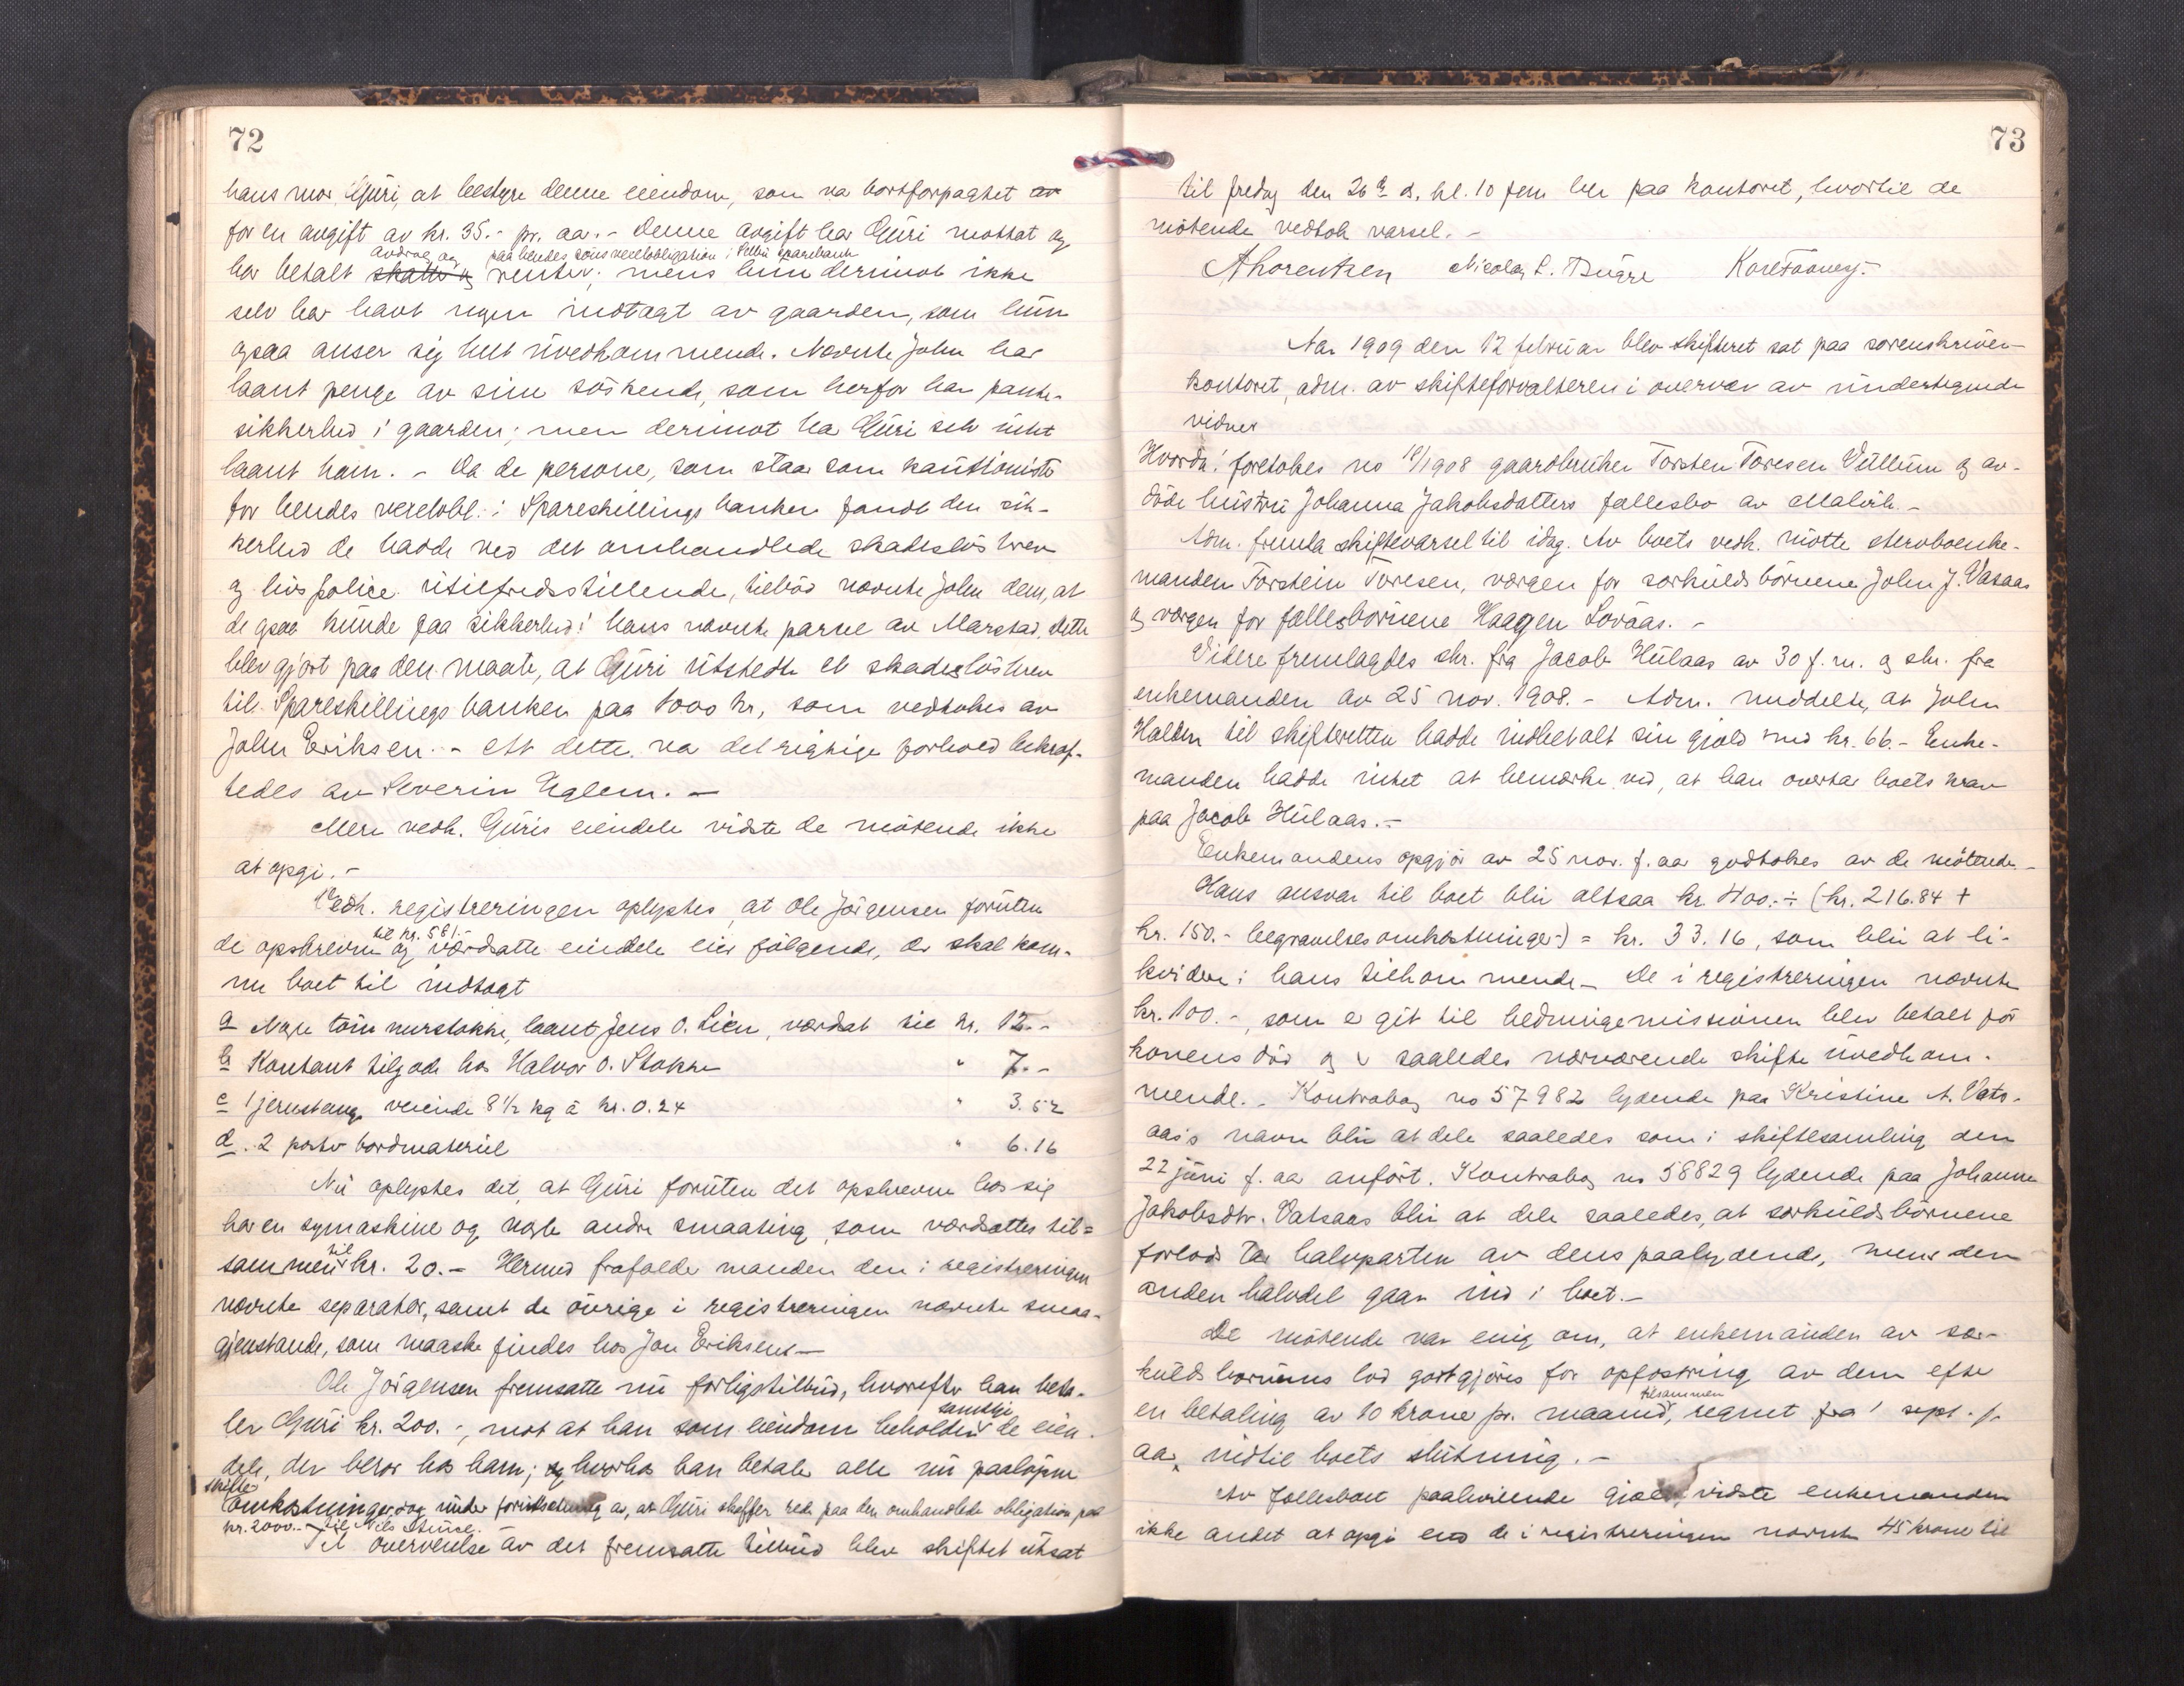 72
hans mor, Guri, at bestyre denne eiendom, som va bortforpagtet av
for en avgift av kr. 35.- pr. aa. - Denne avgift har Guri mottat og
avdrag og paa hendes søns vexelobligation i Selbu Sparebank
har betalt skatter og renter; mens hun derimot ikke
selv har havt nogen indtægt av gaarden, som hun
ogsaa anser sig helt uvedkommende. Nævnte John har
laant penge av sine søskende, som herfor har pante-
sikkerhed i gaarden; men derimot ha Guri selv intet
laant ham. - Da de persone, som staar som kautionister
for hendes vexelobl. i Spareskillingsbanken fandt den sik-
kerhed de hadde ved det omhandlede skadesløsbrev
og livspolice utilfredsstillende, tilbød nævnte John dem, at
de ogsaa kunde faa sikkerhed i hans nævnte parsel av Marstad, dette
blev gjort paa den maate, at Guri utstedte et skadesløsbrev
til Spareskillingsbanken paa 1000 kr, som vedtokes av
John Eriksen. - At dette va det rigtige forhold bekræf-
tedes av Severin Uglem. -
Mere vedk. Guris eiendele vidste de møtende ikke
at opgi. -
Vedk. registreringen oplystes, at Ole Jørgensen foruten
til kr. 581.-
de opskrevne og værdsatte eiendele eier følgende, der skal kom-
me boet til indtægt
a Nogre tømmerstokke, laant Jens O. Lien, værdsat til kr. 12.-
b Kontant tilgode hos Halvor O. Stokke " 7.-
c 1 jernstang veiende 8 1/2 kg à kr. 0.24 " 3.52
d. 2 partier bordmateriel " 6.16
Nu oplystes det, at Guri foruten det opskrevne hos sig
har en symaskine og nogle andre smaating, som værdsattes til-
til
sammen kr. 20.- Hermed frafalder manden den i registreringen
nævnte separator, samt de øvrige i registreringen nævnte smaa-
gjenstande, som maaske findes hos Jon Eriksen. -
Ole Jørgensen fremsatte nu forligstilbud, hvorefter han beta-
samtlige
ler Guri kr. 200.-, mot at han som eiendom beholder de eien-
dele, der beror hos ham; og hvorhos han betaler alle nu paaløpne
skifte
omkostninger, dog under forutsætning av, at Guri skaffer rede paa den omhandlede obligation paa
kr. 2000.- til Nils
Til overveielse av det fremsatte tilbud blev skiftet utsat
73
til fredag den 26de ds. kl. 10 fm her paa kontoret, hvortil de
møtende vedtok varsel. -
A Lorentzen Nicolay C. Kore
Aar 1909 den 12 februar blev skifteret sat paa sorenskriver-
kontoret, adm. av skifteforvalteren i overvær av undertegnede
vidner
Hvorda: foretokes no 18/1908 gaardbruker Torsten Toresen Vullum og av-
døde hustru Johanna Jakobsdatters fællesbo av Malvik. -
Adm. fremla skiftevarsel til idag. Av boets vedk. møtte sterboenke-
manden Torstein Toresen, vergen for særkuldsbørnene John J. Vasaas
og vergen for fællesbørnene Haagen Lovaas. -
Videre fremlagdes skr. fra Jacob Hulaas av 30 f. m. og skr. fra
enkemanden av 25 nov. 1908. - Adm. meddelte, at John
Halden til skifteretten hadde indbetalt sin gjæld med kr. 66.- Enke-
manden hadde intet at bemerke ved, at han overtar boets krav
paa Jacob Hulaas. -
Enkemandens opgjør av 25 nov. f. aar godtokes av de møtende. -
Hans ansvar til boet blir altsaa kr. 400.- ÷ (kr. 216.84 +
kr. 150.- begravelsesomkostninger) = kr. 33.16, som blir at li-
kvidere i hans tilkommende. De i registreringen nævnte
kr. 100.-, som er git til hedningemissionen blev betalt før
konens død og er saaledes nærværende skifte uvedkom-
mende. - Kontrabog no 57982 lydende paa Kristine A. Vats-
aas's navn blir at dele saaledes som i skiftesamling den
22 juni f. aa anført. Kontrabog no 58829 lydende paa Johanna
Jakobsdtr. Vatsaas blir at dele saaledes, at særkuldsbørnene
forlods tar halvparten av dens paalydende, mens den
anden halvdel gaar ind i boet. -
De møtende var enig om, at enkemanden av sær-
kuldsbørnenes lod godtgjøres for opfostring av dem efter
tilsammen
en betaling av 10 krone pr. maaned, regnet fra 1 sept. f.
aa, indtil boets slutning. -
Av fællesboet paahvilende gjæld vidste enkemanden
ikke andet at opgi end de i registreringen nævnte 45 krone til